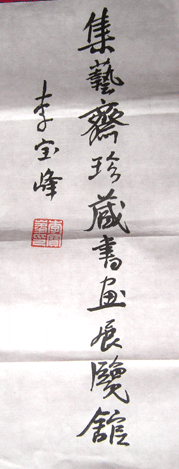 集藝齋珍藏書画展覽舘
李宝峰